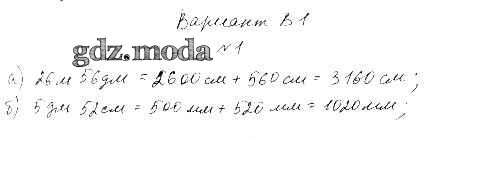 Вариант В1
gdz.moda №1
а) 26м 56дм = 2600см + 560см = 3160см;
б) 5дм 52см = 500мм + 520мм = 1020мм;